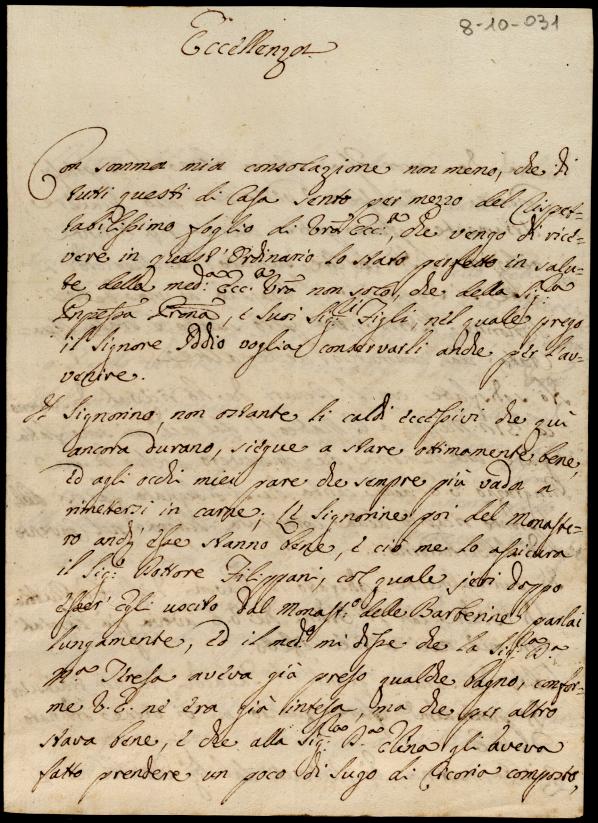 8-10-031
Eccellenza
Con somma mia consolazione non meno, che di
tutti questi di Casa sento per mezzo del Rispet-
tabilissimo foglio di Vra Ecc:a, che vengo di rice-
vere in quest'Ordinario lo stato perfetto in salu-
te della med:a Ecc:a Vra non solo, che della Sig:ra
Pnpessa, e suoi Sig:lli Figli, nel quale prego
il Signore Iddio voglia conservarli anche per l'av-
venire.
Il Signorino, non ostante li caldi eccessivi che quì
ancora durano, siegue a stare ottimamente bene,
ed agli occhi miei pare che sempre più vada a
rimettersi in carne; Le Signorine poi del Monaste-
ro anch'esse stanno bene, e ciò me lo assicura
il Sig:r Dottore Filippani, col quale jeri doppo
esser Egli uscito dal Monast:o delle Barberine parlai
lungamente, ed il med:o mi disse che la Sig:ra D:a
M:a Teresa aveva già preso qualche bagno, confor-
me V.E. ne era già intesa, ma che per altro
stava bene, e che alla Sig:ra D:a Clina gli aveva
fatto prendere un poco di sugo di Cicoria composto,